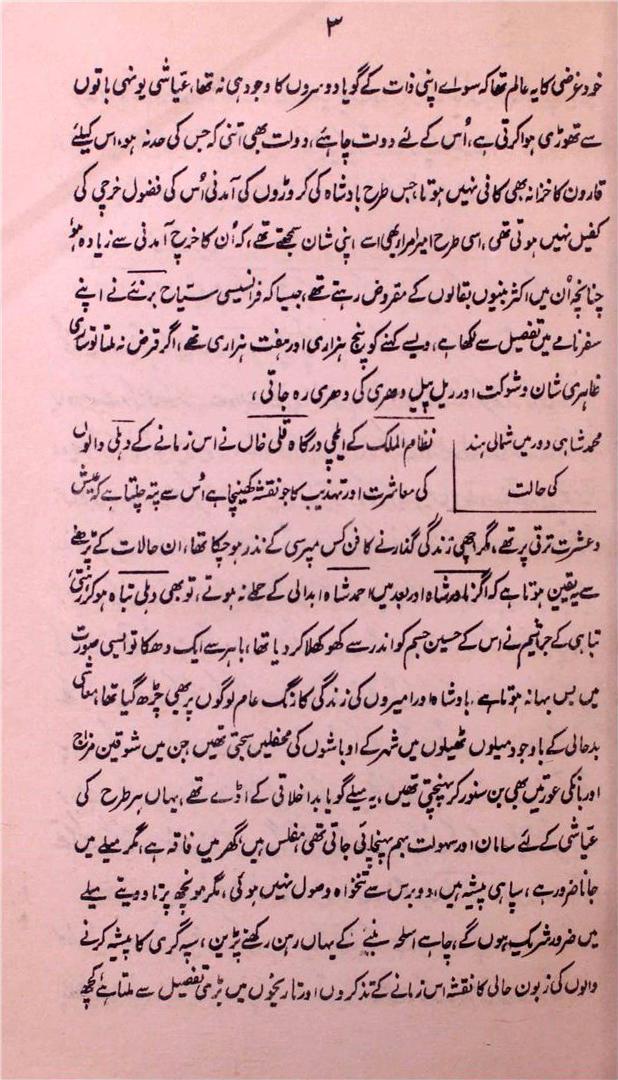 ۳
خود غرضی کا یہ عالم تھا کہ سواے اپنی ذات کے گویا دوسروں کا وجود ہی نہ تھا، عیاشی یونہی باتوں
سے تھوڑی ہوا کرتی ہے، اُس کے لئے دولت چاہئے، دولت بھی اتنی کہ جس کی حد نہ ہو، اس کیلئے
قارون کا خزانہ بھی کافی نہیں ہوتا، جس طرح بادشاہ کی کروڑوں کی آمدنی اُس کی فضول خرچی کی
کفیل نہیں ہوتی تھی، اسی طرح امیر امرا بھی اسے اپنی شان سمجھتے تھے، کہ اُن کا خرچ آمدنی سے زیادہ ہو
چنانچہ اُن میں اکثر بنیوں بقالوں کے مقروض رہتے تھے، جیسا کہ فرانسیسی سیّاح برنئے نے اپنے
سفرنامے میں تفصیل سے لکھا ہے، ویسے کہنے کو پنج ہزاری اور ہفت ہزاری تھے، اگر قرض نہ ملتا تو ساری
ظاہری شان و شوکت اور ریل پیل دھری کی دھری رہ جاتی،
محمد شاہی دور میں شمالی ہند نظام الملک کے ایلچی درگاہ قلی خاں نے اس زمانے کے دہلی والوں
کی حالت کی معاشرت اور تہذیب کا جو نقشہ کھینچا ہے اُس سے پتہ چلتا ہے کہ عیش
و عشرت ترقی پر تھے، مگر اچھی زندگی گذارنے کا فن کس مپرسی کے نذر ہو چکا تھا، ان حالات کے پڑھنے
سے یقین ہوتا ہے کہ اگر نادر شاہ اور بعد میں احمد شاہ ابدالی کے حملے نہ ہوتے، تو بھی دہلی تباہ ہو کر رہتی
تباہی کے جراثیم نے اس کے حسین جسم کو اندر سے کھوکھلا کر دیا تھا، باہر سے ایک دھکا تو ایسی صورت
میں بس بہانہ ہوتا ہے۔ بادشاہ اور امیروں کی زندگی کا رنگ عام لوگوں پر بھی چڑھ گیا تھا، معاشی
بدحالی کے باوجود میلوں ٹھیلوں میں شہر کے اوباشوں کی محفلیں سجتی تھیں جن میں شوقین مزاج
اور بانکی عورتیں بھی بن سنور کر پہنچتی تھیں، یہ میلے گویا بداخلاقی کے اڈے تھے، یہاں ہر طرح کی
عیّاشی کے لئے سامان اور سہولت بہم پہنچائی جاتی تھی، مفلس ہیں، گھر میں فاقہ ہے، مگر میلے میں
جانا ضرور ہے، سپاہی پیشہ ہیں، دو برس سے تنخواہ وصول نہیں ہوئی، مگر مونچھ پر تاؤ دیتے میلے
میں ضرور شریک ہوں گے، چاہے اسلحہ بنیے کے یہاں رہن رکھنے پڑیں، سپہ گری کا پیشہ کرنے
والوں کی زبون حالی کا نقشہ اس زمانے کے تذکروں اور تاریخوں میں بڑی تفصیل سے ملتا ہے کچھ